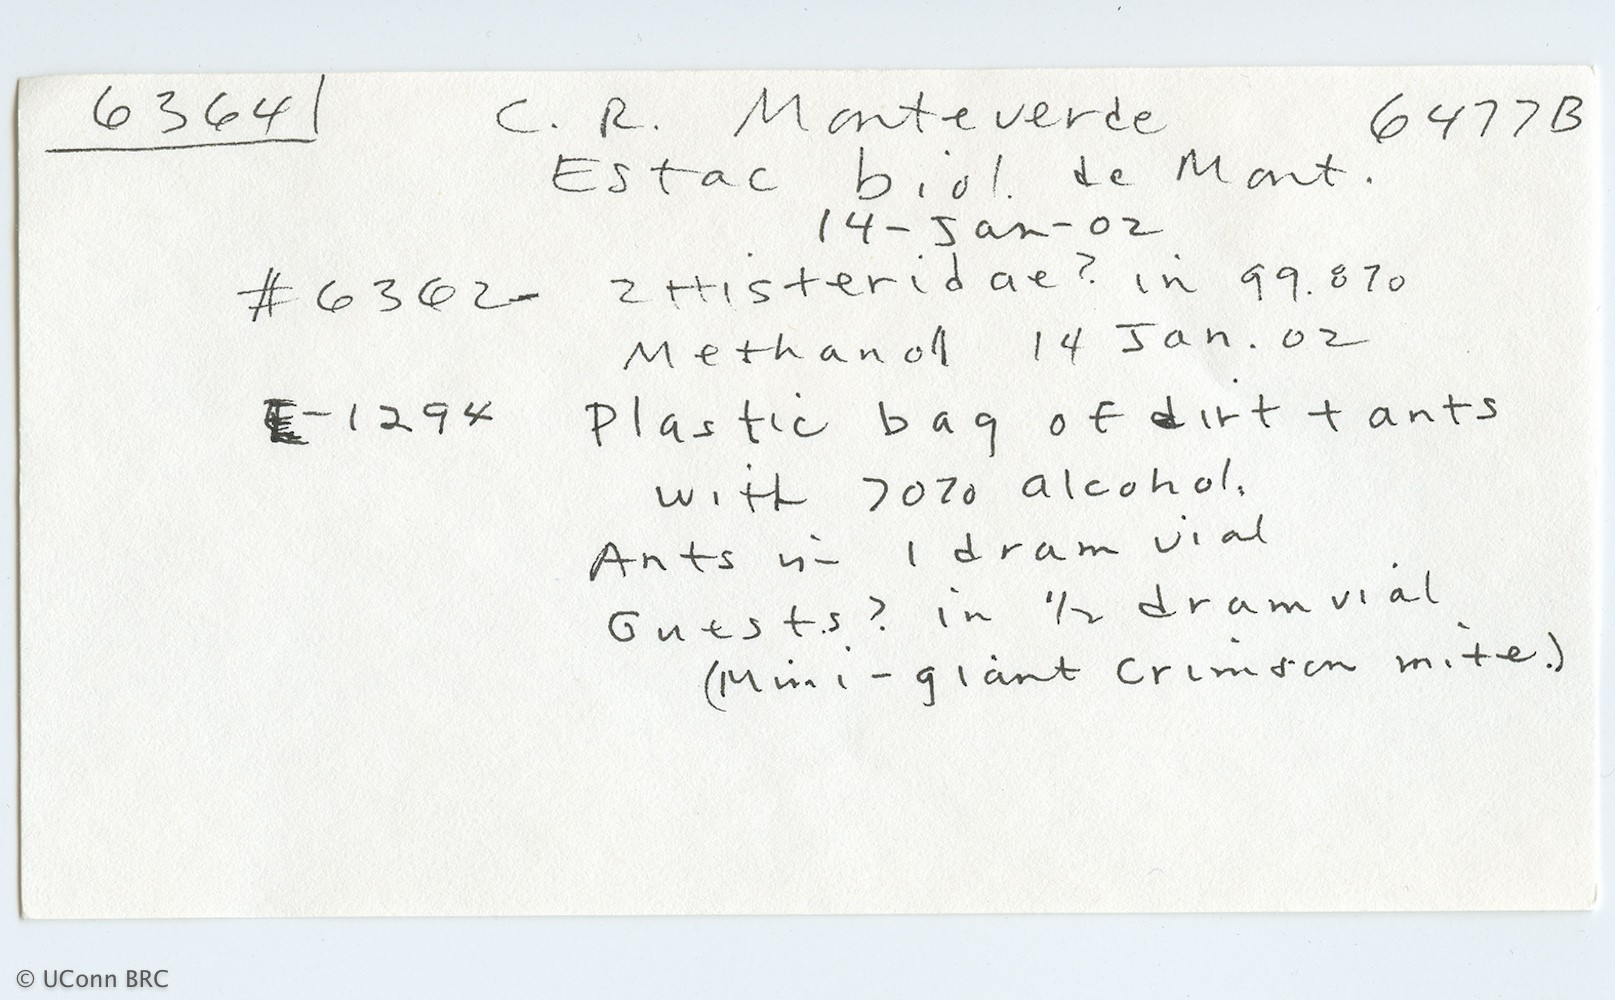 6364 C. R. Monteverde 6477B
Estac biol. de Mont.
14-Jan-02
#6362- 2 Histeridae? in 99.8%
Methanol 14 Jan. 02
E-1294 Plastic bag of dirt + ants
with 70% alcohol.
Ants in 1 dram vial
Guests? in 1/2 dram vial
(Mini-giant Crimson mite.)
© UConn BRC